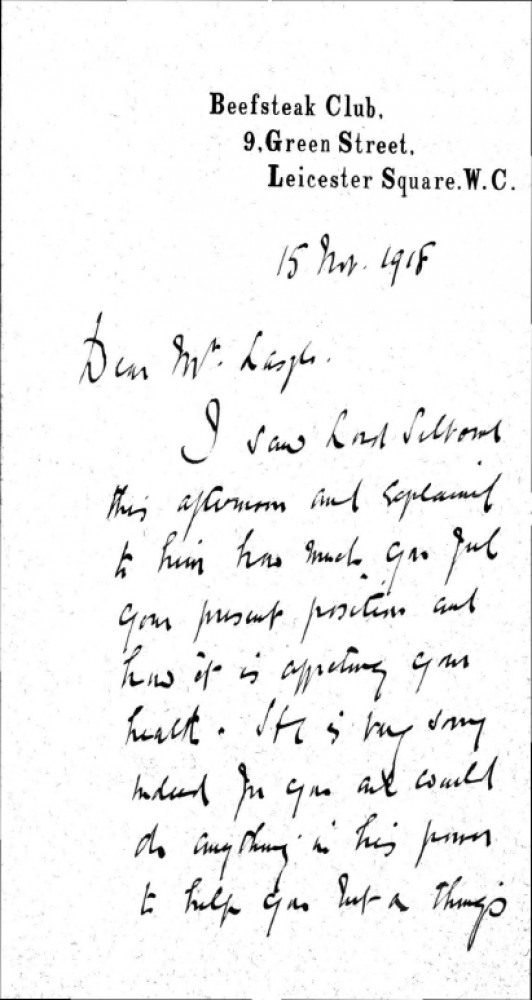 Beefsteak Club,
9, Green Street,
Leicester Square. W.C.
15 Nov. 1918
Dear Mr.
I saw Lord Selborne
this afternoon and explained
to him how much you feel
your present position and
how it is affecting your
health. He is very sorry
indeed for you and would
do anything in his power
to help you but as things